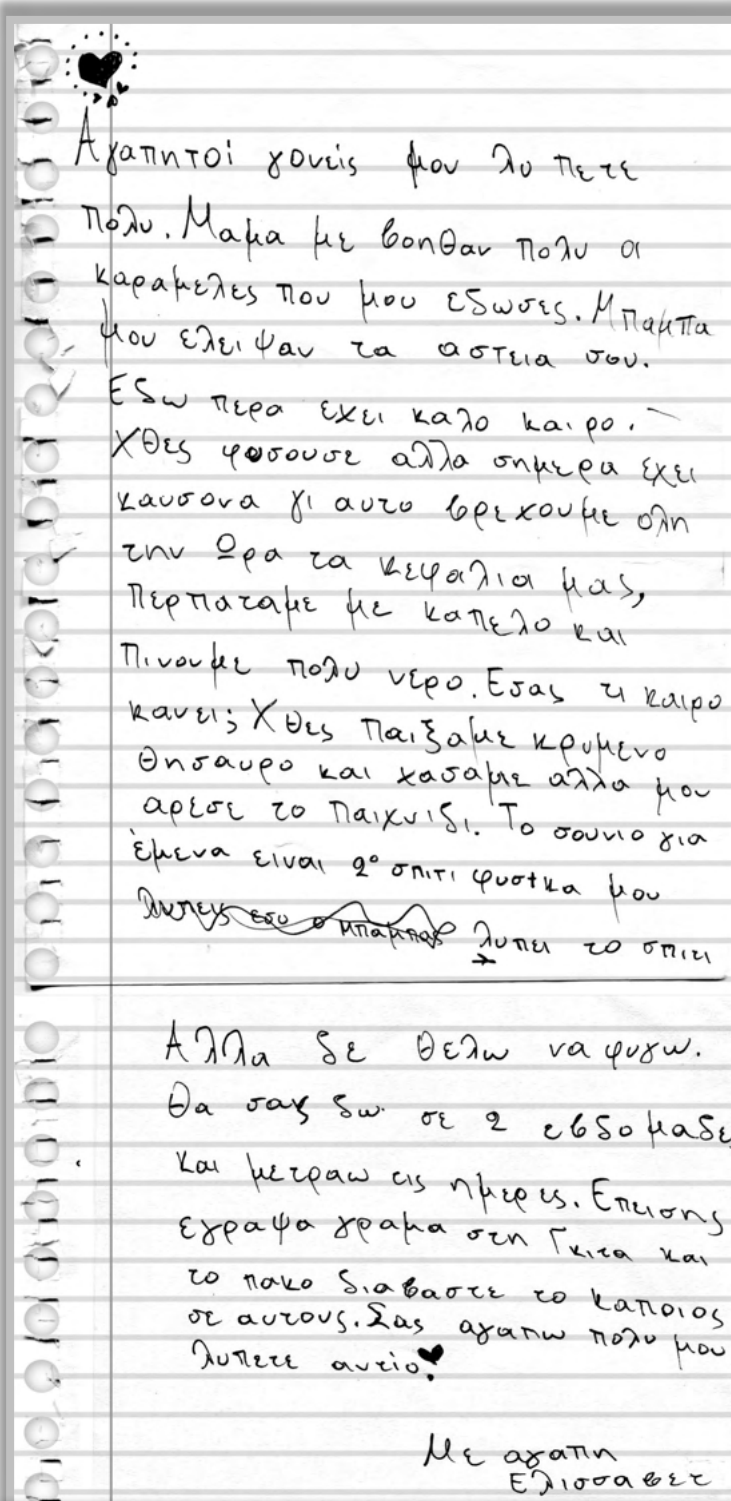 Αγαπητοί γονείς μου λυπετε
πολυ. Μαμα με βοηθαν πολυ οι
καραμελες που μου εδωσες. Μπαμπα
μου ελειψαν τα αστεια σου.
Εδω περα εχει καλο καιρο.
Χθες φυσουσε αλλα σημερα έχει
καυσονα γι αυτο βρεχουμε ολη
την Ωρα τα κεφαλια μας,
Περπαταμε με καπελο και
Πινουμε πολυ νερο. Εσας τι καιρο
κανει; Χθες παιξαμε κρυμενο
Θησαυρο και χασαμε αλλα μου
αρεσε το παιχνιδι. Το σουνιο για
έμενα ειναι 2ο σπιτι φυσικα μου
λυπει το σπιτι
Αλλα δε θελω να φυγω.
Θα σας δω σε 2 εβδομαδε
και μετραω τις ημερες. Επεισης
εγραψα γραμα στη Γκιτα και
το πακο διαβαστε το καποιος
σε αυτους. Σας αγαπω πολυ μου
λυπετε αντίο!
Με αγαπη
Ελισσαβετ